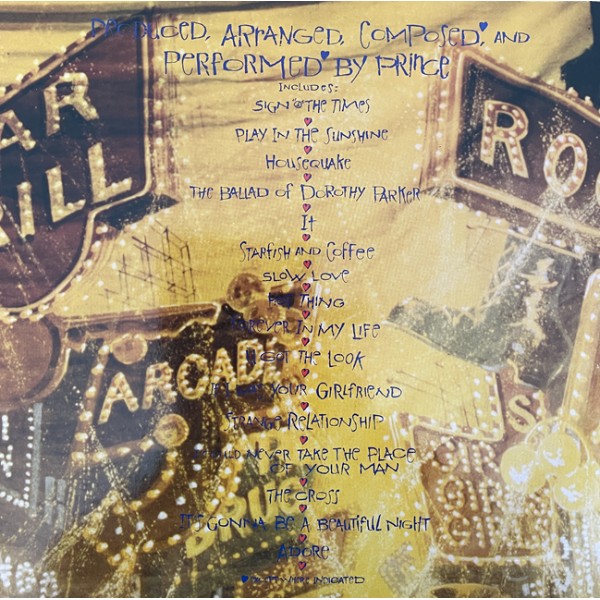 PRODUCED, ARRANGED, COMPOSED, AND
PERFORMED BY PRINCE
INCLUDES:
SIGN "☮" THE TIMES
PLAY IN THE SUNSHINE
HOUSEQUAKE
THE BALLAD OF DOROTHY PARKER
It
STARFISH AND COFFEE
SLOW LOVE
HOT THING
FOREVER IN MY LIFE
U GOT THE LOOK
IF I WAS YOUR GIRLFRIEND
STRANGE RELATIONSHIP
I COULD NEVER TAKE THE PLACE
OF YOUR MAN
THE CROSS
IT'S GONNA BE A BEAUTIFUL NIGHT
ADORE
EXCEPT WHERE INDICATED
AR
ILL
ROC
ARCADE
DRUGS
S
GIR
GIR
GIR